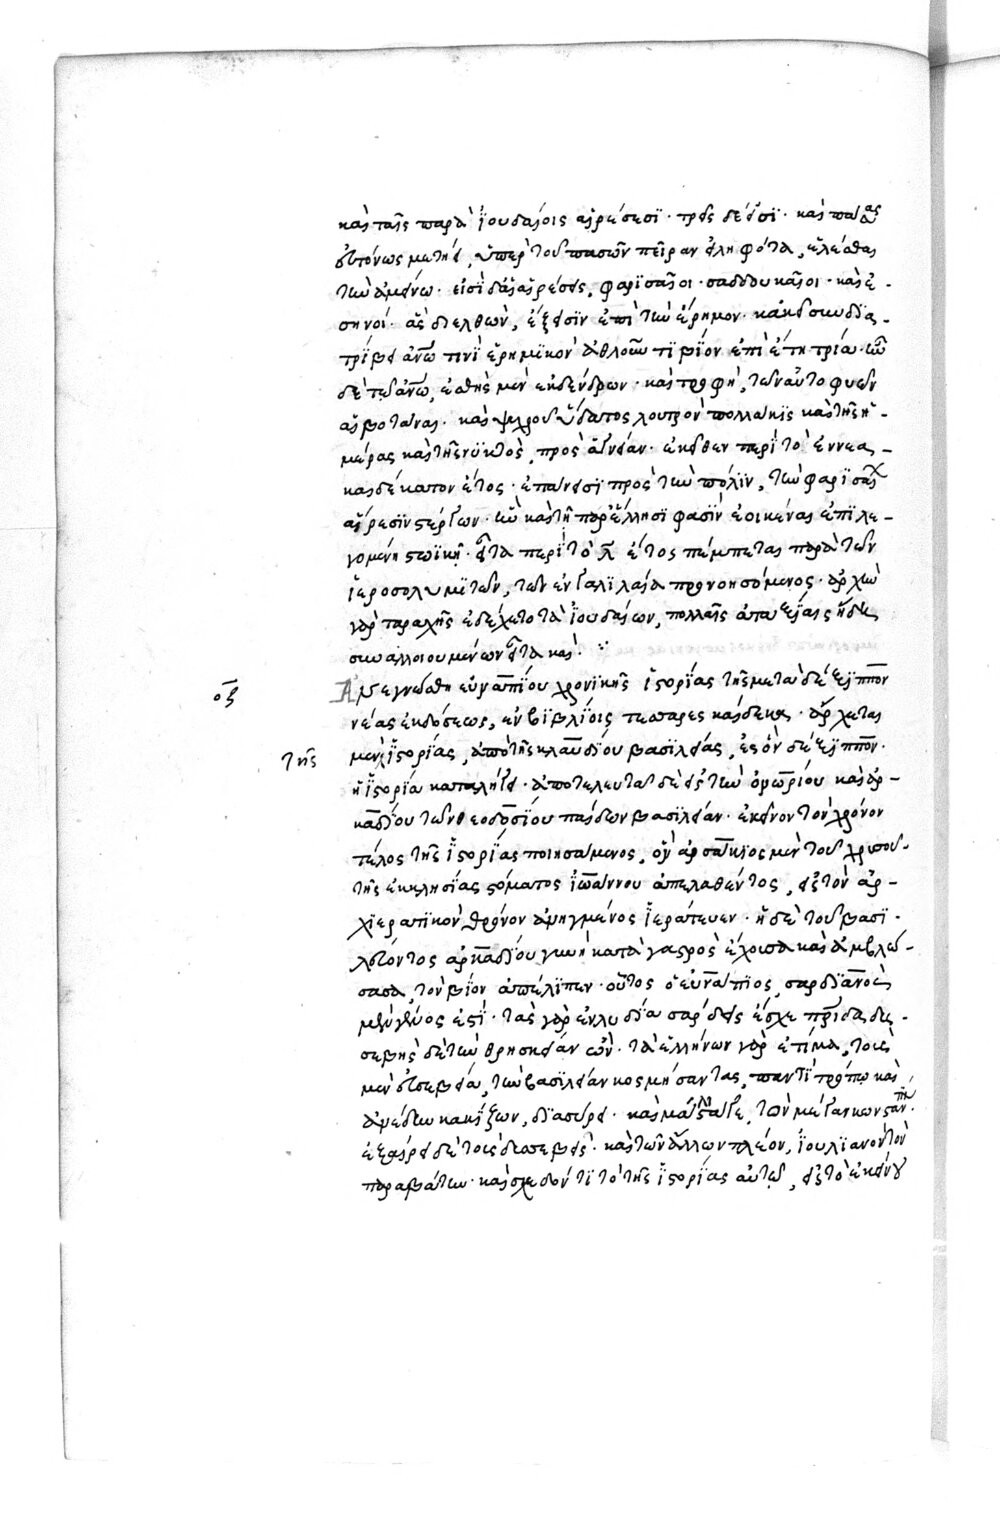 καὶ ταῖς παρὰ ἰουδαίοις αἱρέσεσι· τρεῖς δέ εἰσι· καὶ πάσας
εὐτόνως μετῄει, ὑπὲρ τοῦ πασῶν πεῖραν εἰληφότα, ἑλέσθαι
τὴν ἀμείνω· εἰσὶ δὲ αἱ αἱρέσεις, φαρισαῖοι· σαδδουκαῖοι· καὶ ἐσ-
σηνοί· ἃς διελθὼν, ἔξεισιν ἐπὶ τὴν ἔρημον· κἀκεῖ συνδια-
τρίβει ἀνῶ τινὶ ἐρημικὸν ἀθλοῦντι βίον ἐπὶ ἔτη τρία· ὧ
δὲ τῶ ἀνῶ, ἐσθὴς μὲν ἐκ δένδρων· καὶ τροφὴ, τῶν αὐτοφυῶν
αἱ βοτάναι· καὶ ψυχροῦ ὕδατος λουτρὸν πολλάκις καὶ τῆς ἡ-
μέρας καὶ τῆς νυκτὸς, πρὸς ἁγνείαν· ἐκεῖθεν περὶ τὸ ἐννεα-
καιδέκατον ἔτος· ἐπάνεισι πρὸς τὴν πόλιν, τὴν φαρισαϊκὴν
αἵρεσιν στέργων· ἣν καὶ τῇ παρ' ἕλλησι φασὶν ἐοικέναι ἐπιλε-
γομένη στωϊκῇ· εἶτα περὶ τὸ λ ἔτος πέμπεται παρὰ τῶν
ἱεροσολυμιτῶν, τῶν ἐν γαλιλαία προνοησόμενος· ἀρχὴν
γὰρ ταραχῆς ἐδέχετο τὰ ἰουδαίων, πολλαῖς ἀπανθρωπίαις ἤδη
συναλλοιουμένων εἶτα καὶ·
οζ Ἀνεγνώσθη εὐναπίου χρονικῆς ἱστορίας τῆς μετὰ δέξιππον
νέας ἐκδόσεως, ἐν βιβλίοις τεσσαρεσκαίδεκα· ἄρχεται
τῆς μὲν ἱστορίας, ἀπὸ τῆς κλαυδίου βασιλείας, ἐς ὃν δέξιππον·
ἡ ἱστορία καταλήγει· ἀποτελευτᾶ δὲ εἰς τὴν ὀνωρίου καὶ ἀρ-
καδίου τῶν θεοδοσίου παίδων βασιλείαν· ἐκεῖνον τὸν χρόνον
τέλος τῆς ἱστορίας ποιησάμενος, ὃν ἀρσάκιος μὲν τοῦ χρυσοῦ·
τῆς ἐκκλησίας στόματος ἰωάννου ἀπελαθέντος, εἰς τὸν ἀρ-
χιερατικὸν θρόνον ἀνηγμένος ἱεράτευεν· ἡ δὲ τοῦ βασι-
λεύοντος ἀρκαδίου γυνὴ κατὰ γαστρὸς ἔχουσα καὶ ἀμβλώ-
σασα, τὸν βίον ἀπέλιπεν· οὗτος ὁ εὐνάπιος, σαρδιανὸς
μὲν γένος ἐστί· τὰς γὰρ ἐν λυδία σάρδεις ἔσχε πρίδα δυσ-
σεβὴς δὲ τὴν θρησκείαν ὢν· τὰ ἑλλήνων γὰρ ἐτίμα, τοὺς
μὲν εὐσεβεία, τὴν βασιλείαν κοσμήσαντας, παντὶ τρόπω καὶ
ἀνέδην κακίζων, διασύρει· καὶ μάλιστά γε, τὸν μέγαν κωνσταντῖν·
ἐξαίρει δὲ τοὺς δυσσεβεῖς· καὶ τῶν ἄλλων πλέον, ἰουλιανὸν τὸν
παραβάτην· καὶ σχεδόν τι τὸ τῆς ἱστορίας αὐτῶ, εἰς τὸ ἐκείνου